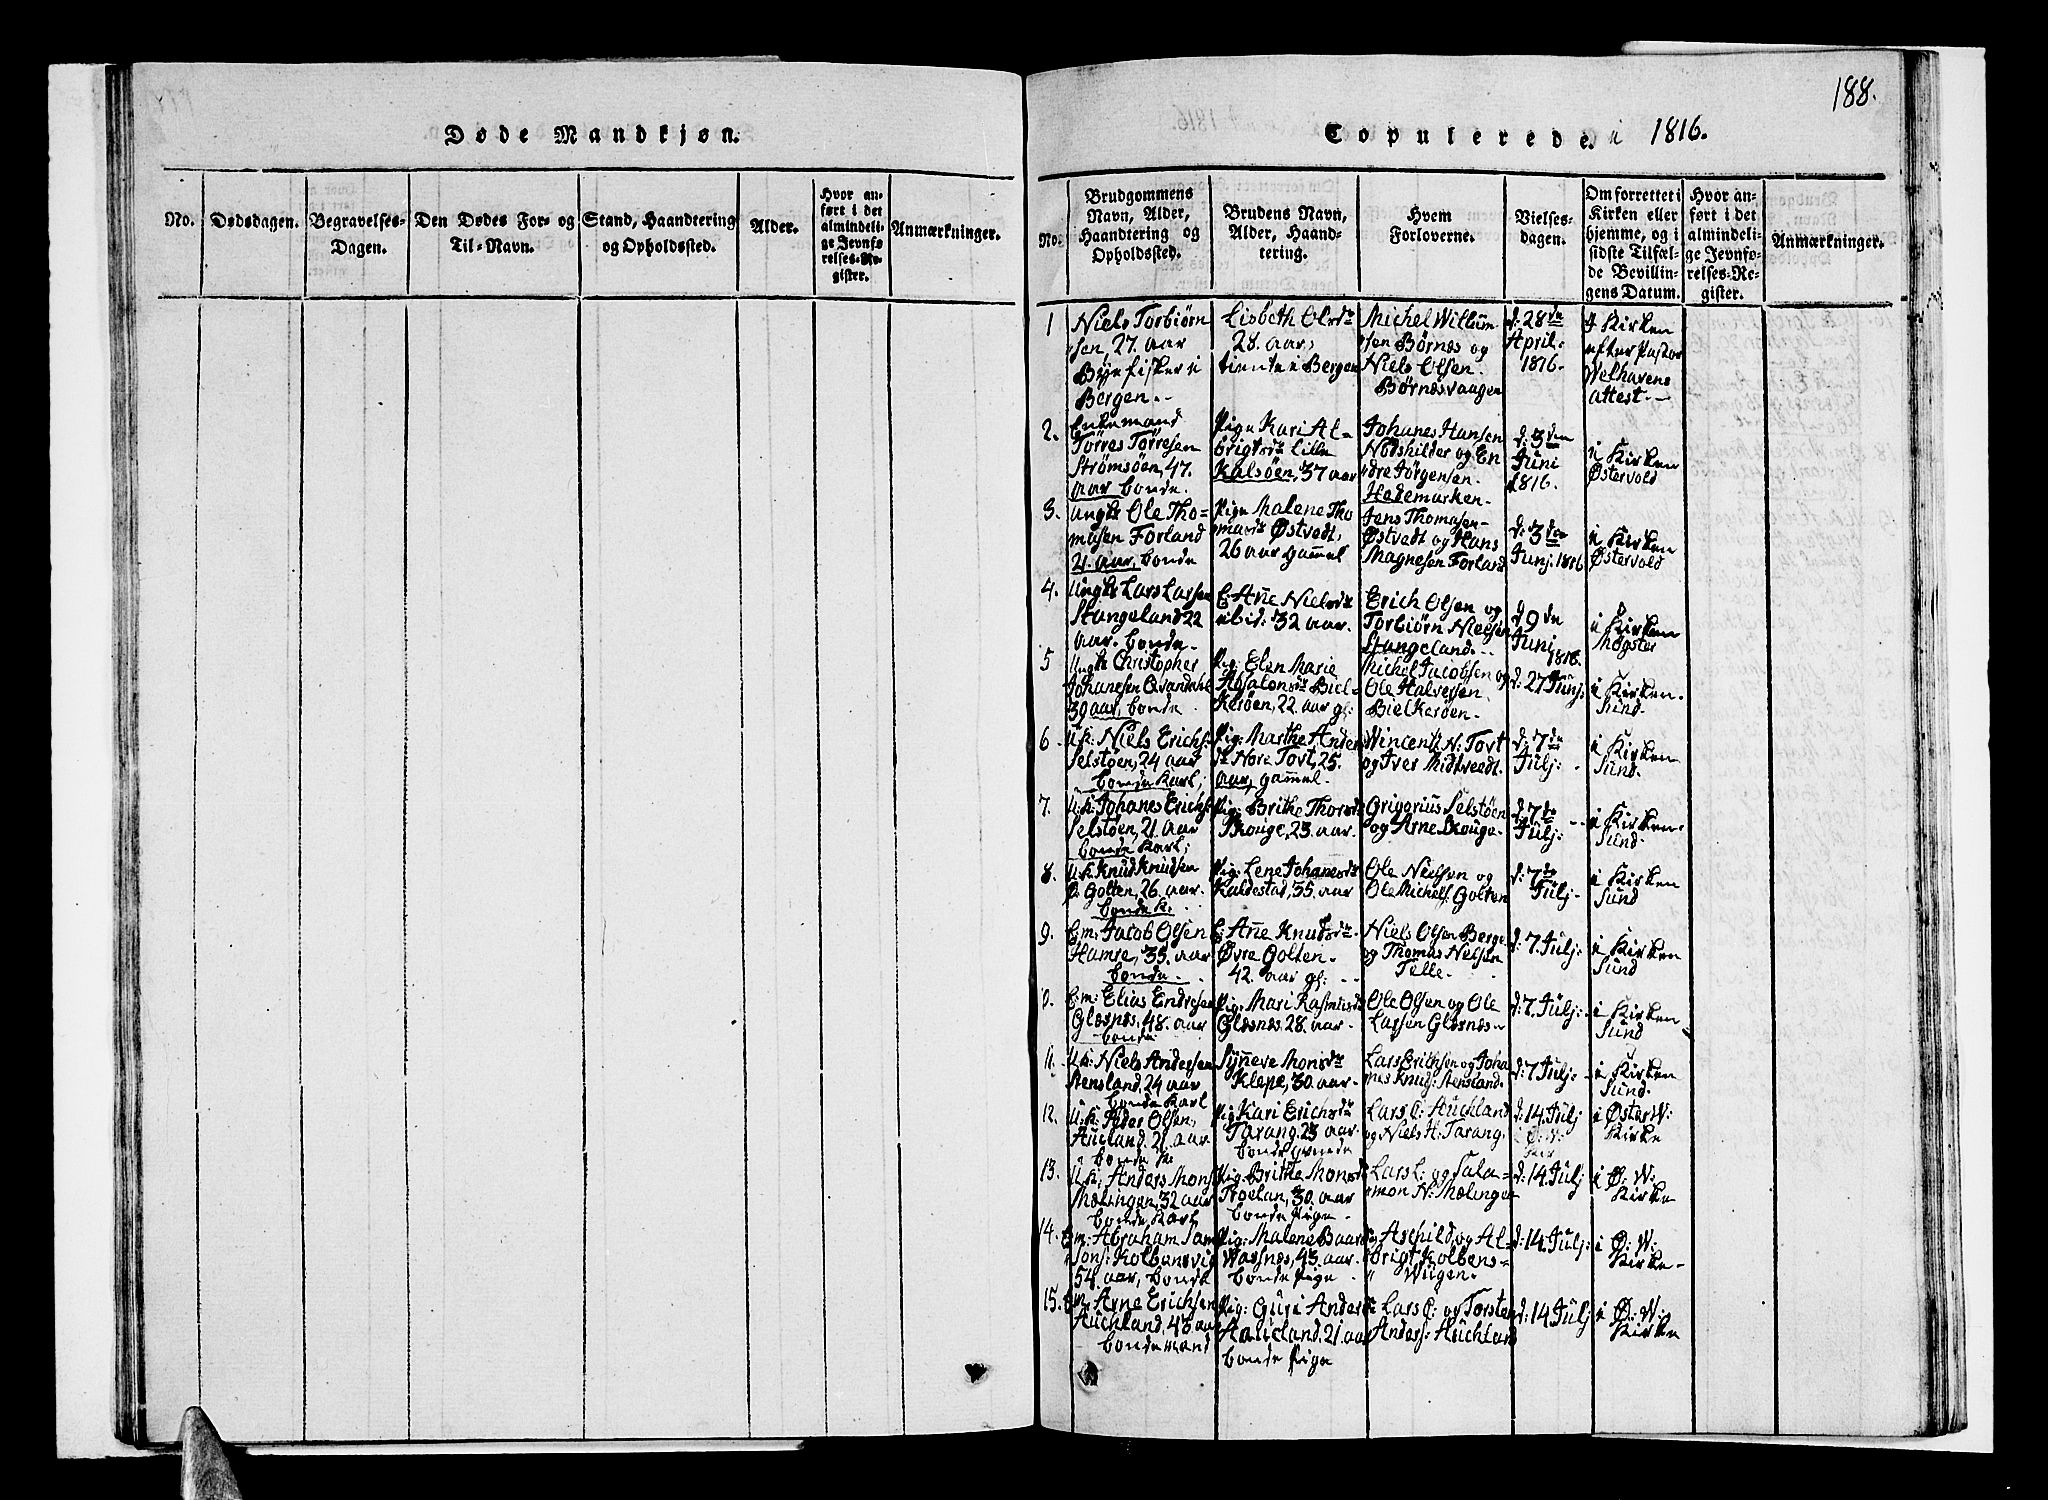 Døde Mandkjøn.
No.
Dødsdagen.
Begravelses-
Dagen.
Den Dødes For- og
Til-Navn.
Stand, Haandtering
og Opholdssted.
Alder.
Hvor an-
ført i det
almindeli-
ge Jevnfø-
relses-Re-
gister.
Anmærkninger.
188.
Copulerede i 1816.
No.
Brudgommens
Navn, Alder,
Haandtering og
Opholdssted.
Brudens Navn,
Alder, Haand-
tering.
Hvem
Forloverne.
Vielses-
dagen.
Om forrettet i
Kirken eller
hjemme, og i
sidste Tilfæl-
de Bevillin-
gens Datum.
Hvor an-
ført i det
almindeli-
ge Jevnfø-
relses-Re-
gister.
Anmærkninger.
1
Niels Torbiørn
sen, 27. aar
Bye fisker i
Bergen.
Lisbeth Olsdr
28. aar,
tiente i Bergen
Michel Willum
sen Børnæs og
Niels Olsen
Børnesvaagen
d: 28de
April.
1816.
I Kirken
efter Pastor
Welhavens
attest.
2.
Enkemand
Torres Torresen
Strømsöen, 47.
aar bonde.
Pige Kari Al-
brigtsdr Lille
Kalsöen, 37 aar
Johanes Hansen
Nodshilder og En
dre Jörgensen
Hedemarken.
d: 3den
Juni
1816.
i Kirken
Østervold
3.
ungk. Ole Tho-
masen Forland
21. aar, bonde
Pige Malene Tho
masdr Østvedt,
26 aar gammel
Jens Thomasen
Østvedt og Hans
Magnesen Forland
d: 3den
Junj. 1816
i Kirken
Østervold
4.
Ungk. Lars Larsen
Stangeland 22
aar. bonde.
E. Ane Nielsdr
ibid: 32 aar.
Erich Olsen og
Torbiörn Nielsen
Stangeland.
d 9de
Juni
1816.
i Kirken
Møgster
5
Ungk. Christopher
Johanesen Qvandahl
30 aar, bonde
Pig: Elen Marie
Absalonsdr Biel-
keröen, 22 aar gl:
Michel Jacobsen og
Ole Halversen
Bielkeröen.
d: 27 Junj.
i Kirken.
Sund.
6
U.k: Niels Erichs:
Selstöen, 24 aar
bonde Karl,
Pig: Marthe Anders
dr Nore Tovt, 25.
aar, gammel.
Wincentz N: Tovt
og Iver Midtvedt.
d: 7de
Julj:
i Kirken
Sund.
7.
U.k: Johanes Erichs:
Selstöen, 21. aar
bonde Karl,
Pig: Brithe Thorsdr
Skouge, 23. aar.
Grigorius Selstöen
og Arne Skouge.
d: 7de
Julj:
i Kirken.
Sund.
8.
U.k. Knud Knudsen
Ø. Golten, 26. aar.
bonde k.
Pig: Lene Johanesdr
Kaldestad, 35. aar
Ole Nielsen og
Ole Michels: Golten
d: 7de
Julj.
i Kirken
Sund
9.
E.m: Jacob Olsen
Hamre, 35. aar
bonde.
E: Ane Knudsdr
Øvre Golten.
42. aar gl:
Niels Olsen Berge
og Thomas Nielsen
Telle.
d: 7. Julj:
i Kirken
Sund
10.
E.m: Elias Endresen
Glæsnæs, 48. aar
bonde
Pig: Mari Rasmusdr
Glæsnæs. 28. aar.
Ole Olsen og Ole
Larsen Glæsnæs.
d: 7. Julj:
i Kirken
Sund
11.
U.k: Niels Andersen
Stensland, 24 aar
bonde Karl
Synneve Monsdr
Klepe, 30. aar.
Lars Erichsen og Joha
nes Knuds: Stensland.
d: 7 Julj:
i Kirken
Sund.
12.
U.k: Peder Olsen,
Auchland, 21. aar
bonde k.
Pig: Kari Erichsdr
Tarang. 23 aar.
bonde
Lars O: Auchland
og Niels H: Tarang.
d: 14. Julj
i Øster W:
Kirke
13.
U.k: Anders Mons:
Mælingen, 32 aar
bonde Karl
Pig: Brithe Monsdr
Troelan, 30. aar
bonde Pige.
Lars L: og Sala-
mon N: Mælingen
d: 14. Julj
i Ø: W.
Kirke
14.
E.m: Abraham Sam
sons: Kolbensvig
54. aar, bonde
Pig: Malene Baards
Wasnæs, 43. aar.
bonde Pige
Aschild og Al-
brigt Kolbens-
Wiigen.
d: 14. Julj:
i Ø: W:
Kirke.
15.
E.m: Arne Erichsen
Auchland, 43 aar
bondemand
Pig: Guri Anders
Aauchland, 21. aar
bonde Pige
Lars O: og Torsten
Anders: Auchland
d: 14 Julj
i Ø: W:
Kirke